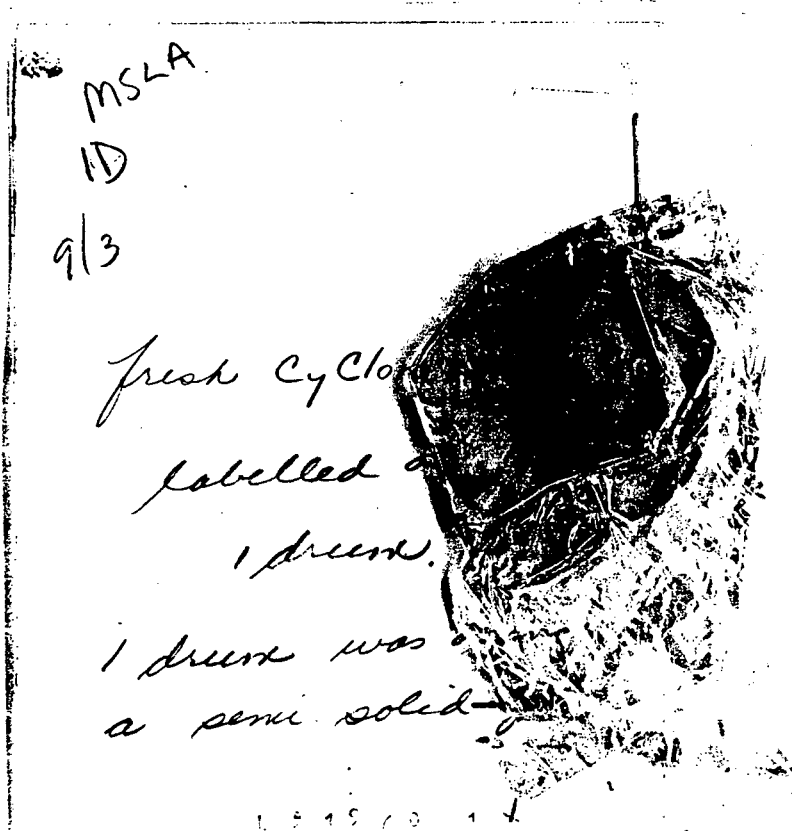 MSLA
ID
9/3
fresh CyClo
labelled
1 drum.
1 drum was
a semi solid